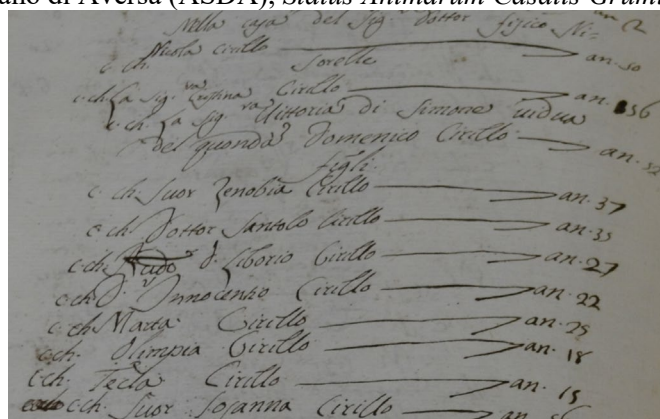 ano di Aversa (ASDA), Status Animarum Casalis Grumi
an. 2
Nella casa del Sig. Dottor fisico Ni=
c. ch. Nicola Cirillo an. 50
Sorelle
c. ch. La Sig.ra Cirillo an. 56
c. ch. La Sig.ra Vittoria di Simone vidua
del quonda Domenico Cirillo an.
figli
c. ch. Suor Zenobia Cirillo an. 37
c. ch. Dottor Santolo Cirillo an. 35
c. ch. D. Liborio Cirillo an. 27
c. ch. D. Innocentio Cirillo an. 22
c. ch. Marta Cirillo an. 25
c. ch. Olimpia Cirillo an. 18
c. ch. Tecla Cirillo an. 15
c. ch. Suor Sosanna Cirillo an. 56